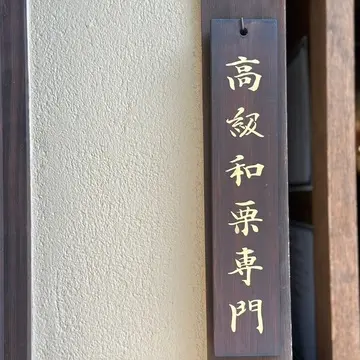 高級和栗専門